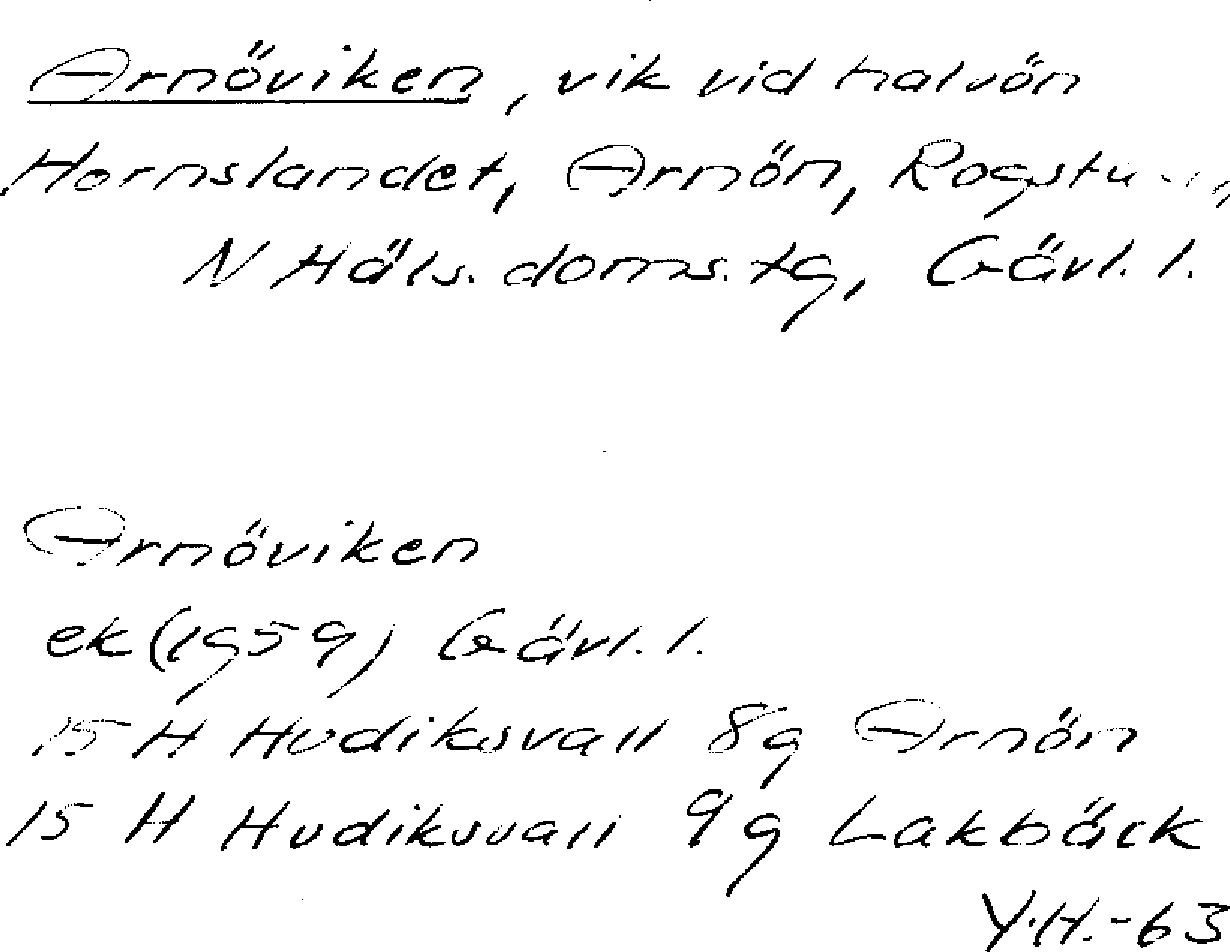 Arnöviken, vik vid halvön
Hornslandet, Arnön,
N Häls. doms. tg, Gävl. l.
Arnöviken
ek (1959) Gävl. l.
15 H Hudiksvall 8g Arnön
15 H Hudiksvall 9g Lakbäck
Y.H.-63